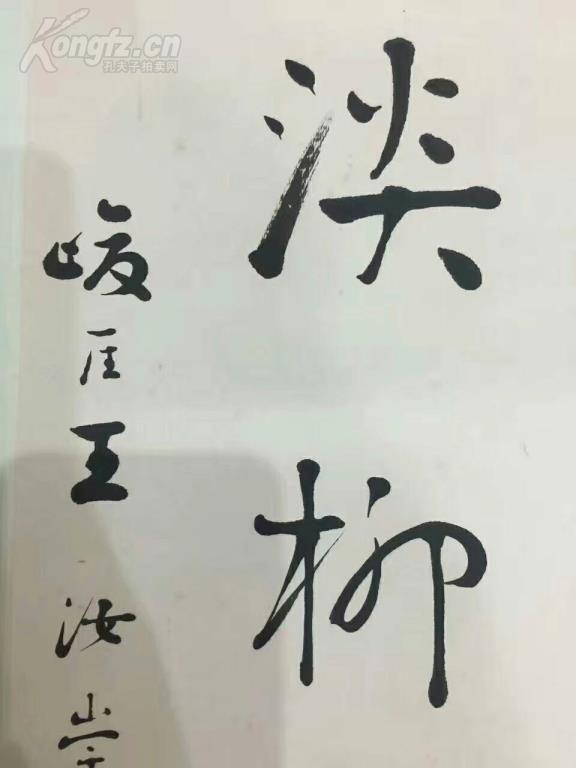 Kongfz.cn
孔夫子拍卖网
淡柳
峻厓王汝崇